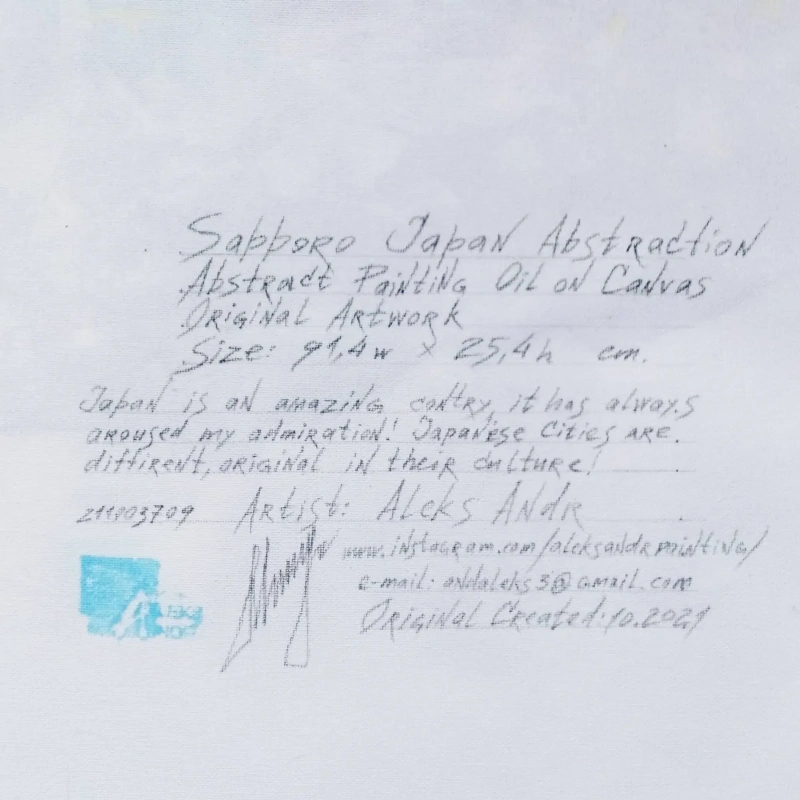 Sapporo Japan Abstraction
Abstract Painting Oil on Canvas
Original Artwork
Size: 91,4w x 25,4h cm.
Japan is an amazing contry, it has always
aroused my admiration! Japanese Cities are
diffirent, original in their culture!
211003709 Artist: Aleks Andr
www.instagram.com/aleksandrpainting/
e-mail: andaleks3@gmail.com
Original Created: 10.2021